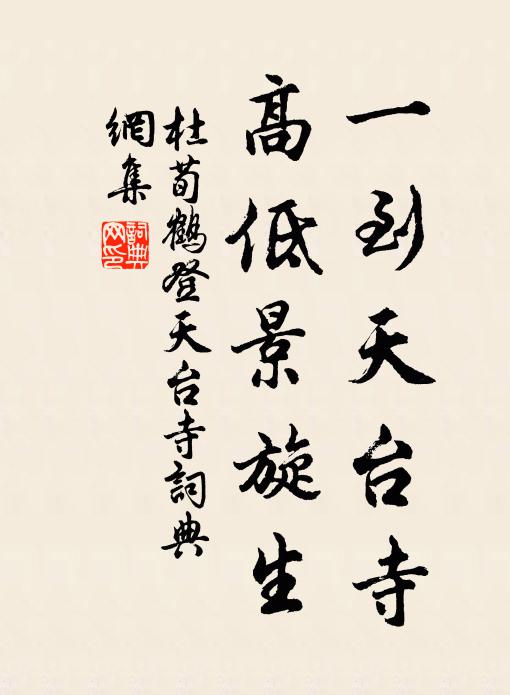 一到天台寺
高低景旋生
杜荀鶴登天台寺詞典
網集
詞典
网印